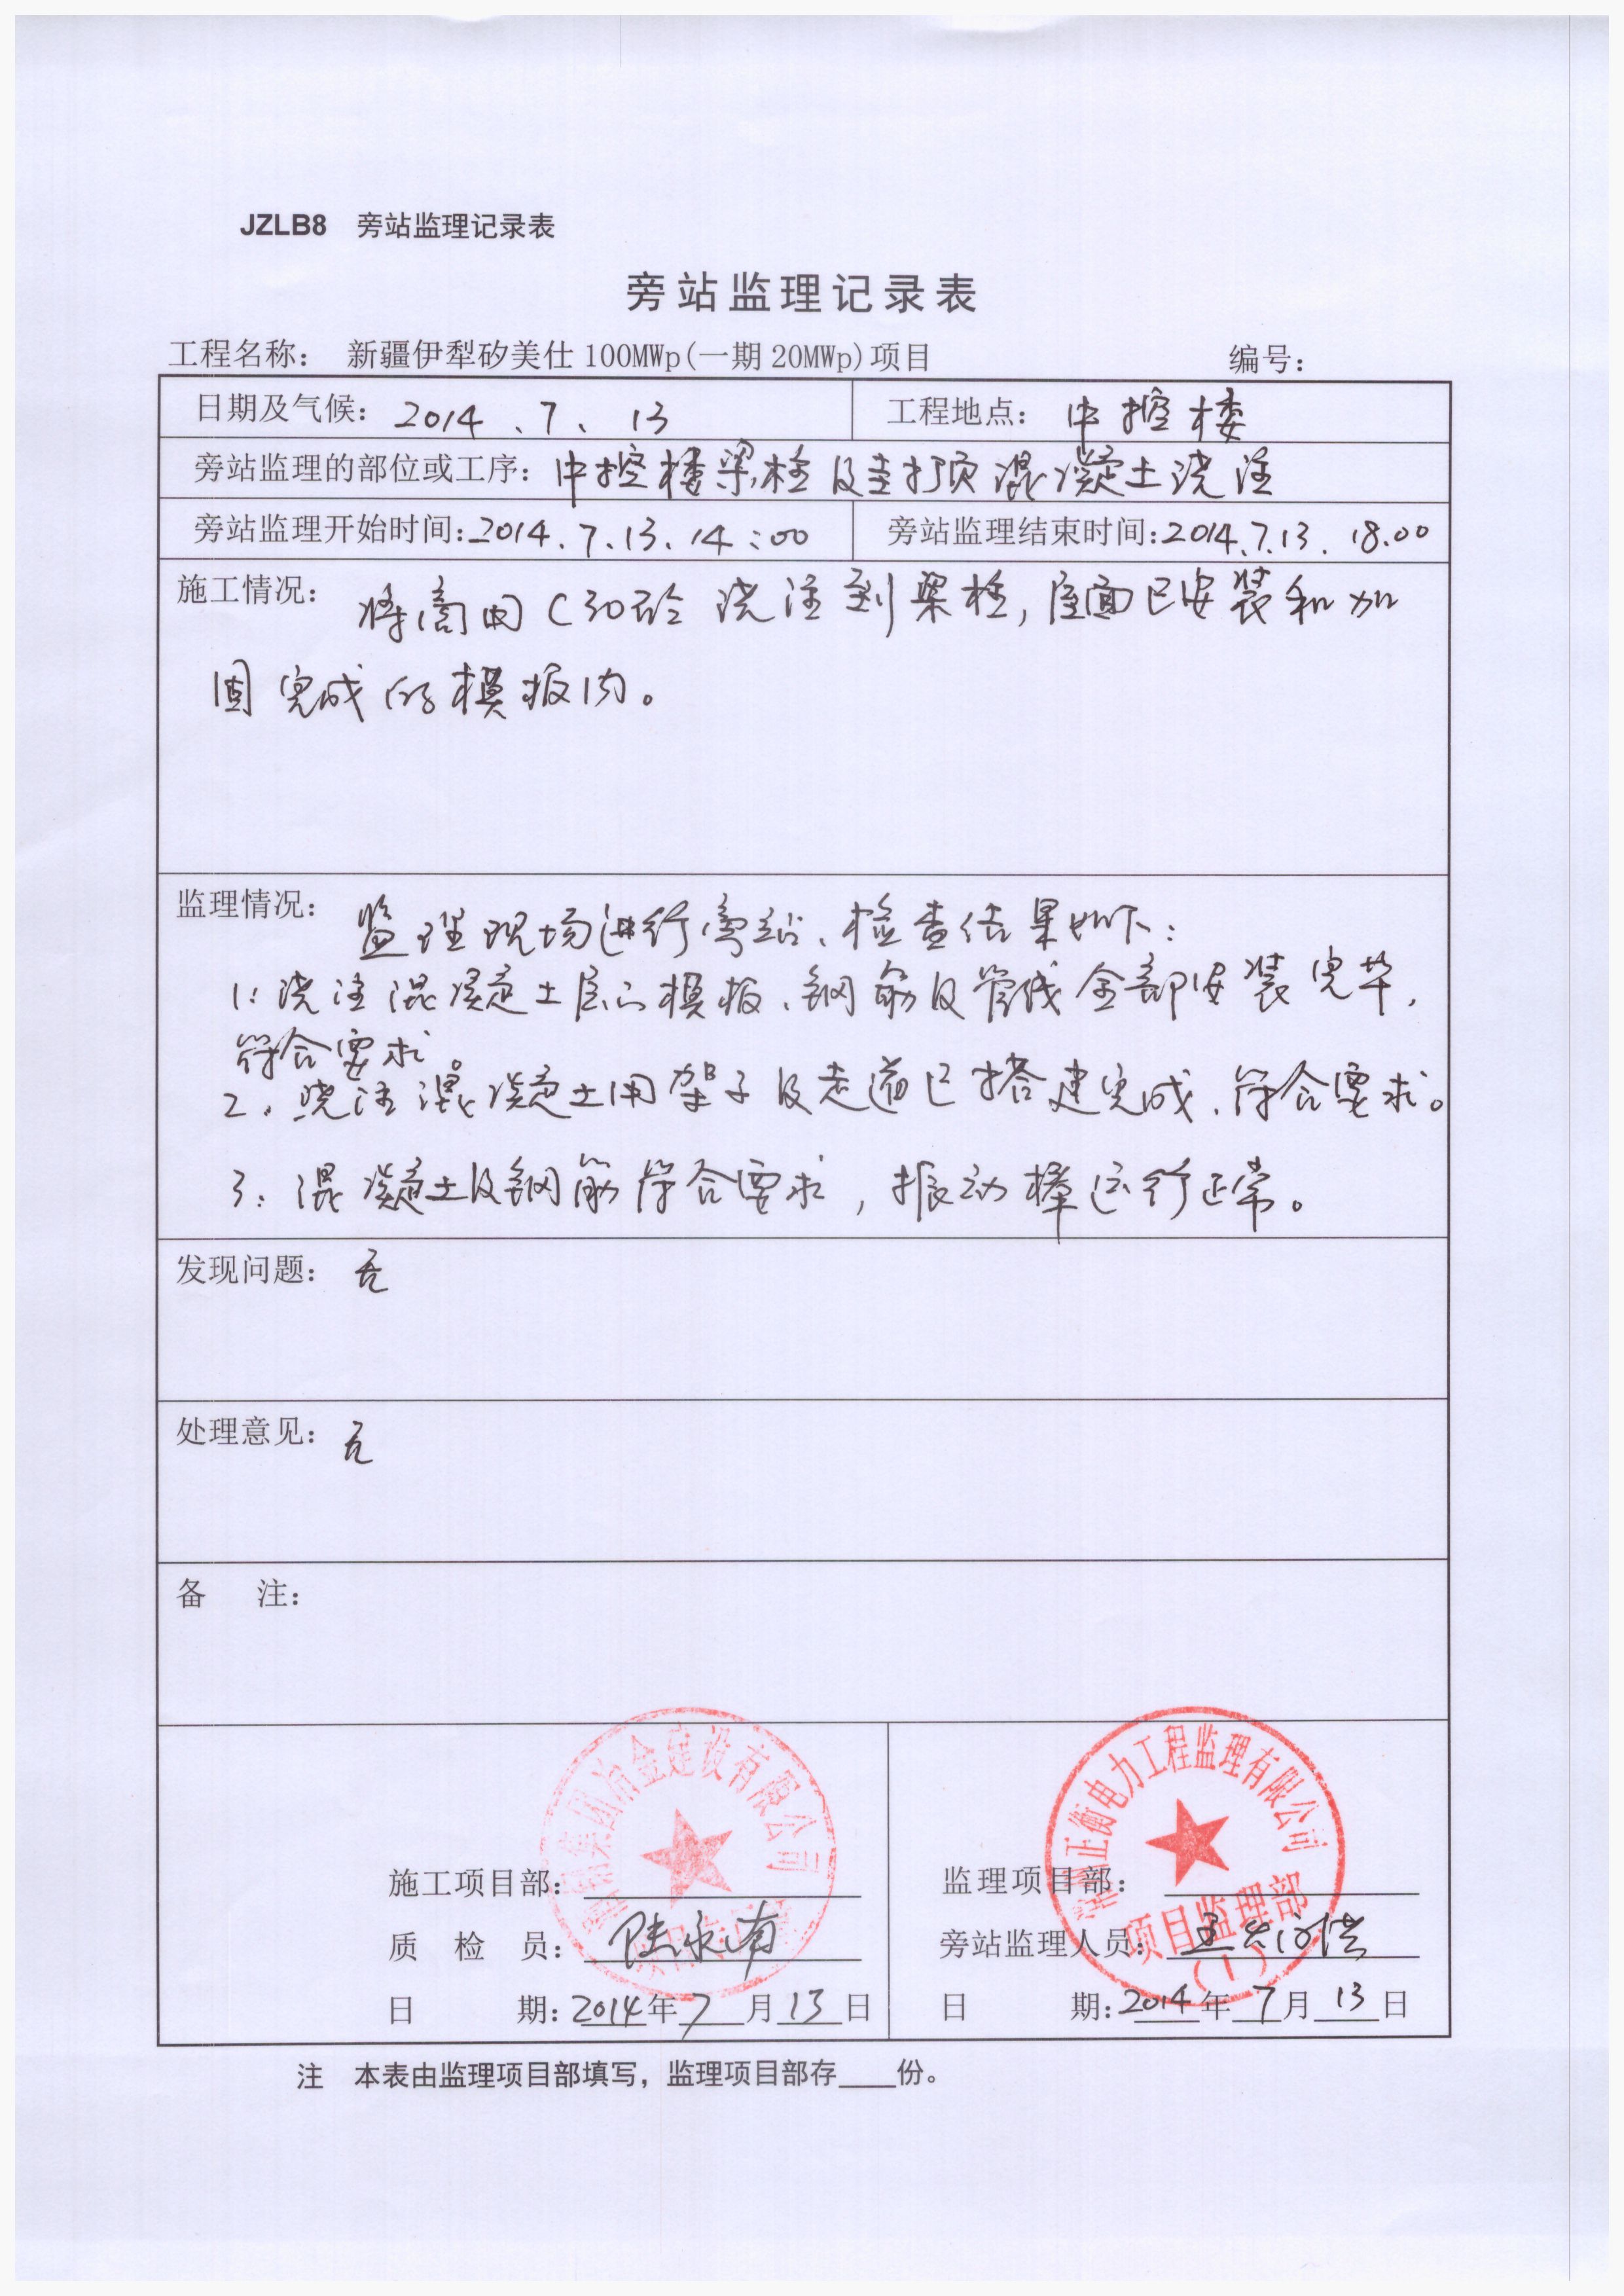 JZLB8 旁站监理记录表
旁站监理记录表
工程名称： 新疆伊犁矽美仕100MWp(一期20MWp)项目 编号：
日期及气候：2014、7、13 工程地点：中控楼
旁站监理的部位或工序：中控楼梁柱及 顶混凝土浇注
旁站监理开始时间：2014、7、13、14：00 旁站监理结束时间：2014.7.13. 18.00
施工情况： 将商 C30砼浇注到梁柱，屋面已安装和加
固完成的模板内。
监理情况： 监理现场进行旁站、检查结果如下：
1：浇注混凝土层的模板、钢筋及管线全部安装完毕，
符合要求。
2、浇注混凝土用架子及走道已搭建完成、符合要求。
3：混凝土及钢筋符合要求，振动棒运行正常。
发现问题：无
处理意见：无
备 注：
集团冶金建设有限公司
正衡电力工程监理有限公司
施工项目部： 监理项目部：
项目监理部
质 检 员：陆永南 旁站监理人员：
(1)
日 期：2014年7月13日 日 期：2014年7月13日
注 本表由监理项目部填写，监理项目部存____份。